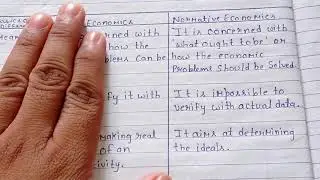 Economics
Normative Economics
concerned with
how the
problems can be
It is concerned with
'what ought to be' or
how the economic
Problems should be solved.
it with
It is impossible to
verify with actual data.
making real
of an
It aims at determining
the ideals.